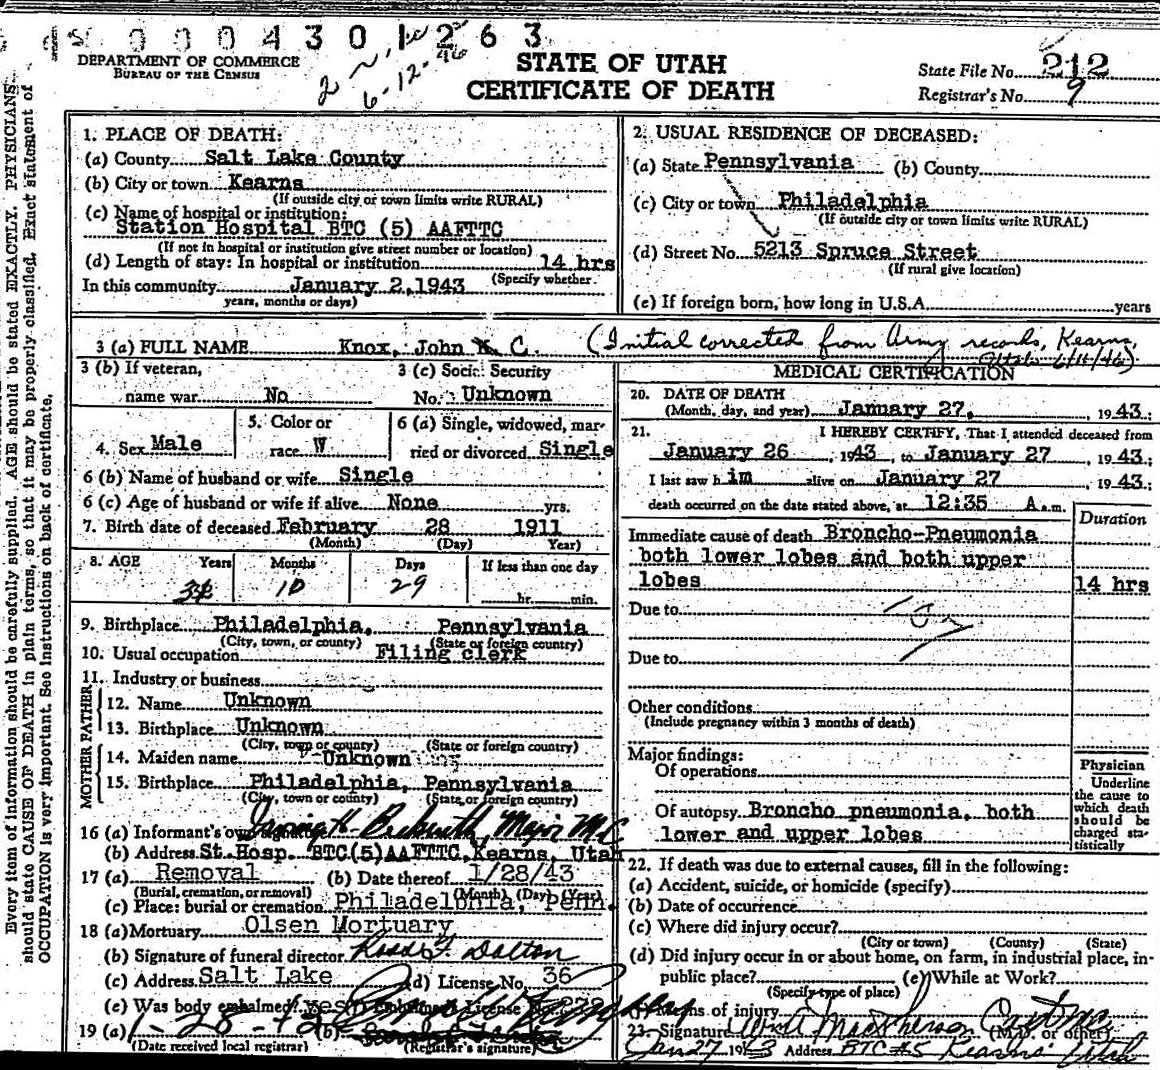 0 0 0 4 3 0 1 2 6 3
DEPARTMENT OF COMMERCE
BUREAU OF THE CENSUS
6-12-46
STATE OF UTAH
CERTIFICATE OF DEATH
State File No. 212
Registrar's No. 9
Every item of information should be carefully supplied. AGE should be stated EXACTLY. PHYSICIANS
should state CAUSE OF DEATH in plain terms, so that it may be properly classified. Exact statement of
OCCUPATION is very important. See instructions on back of certificate.
1. PLACE OF DEATH:
(a) County Salt Lake County
(b) City or town Kearns
(If outside city or town limits write RURAL)
(c) Name of hospital or institution:
Station Hospital BTC (5) AAFTTC
(If not in hospital or institution give street number or location)
(d) Length of stay: In hospital or institution 14 hrs
(Specify whether
In this community January 2, 1943
years, months or days)
2. USUAL RESIDENCE OF DECEASED:
(a) State Pennsylvania (b) County
(c) City or town Philadelphia
(If outside city or town limits write RURAL)
(d) Street No. 5213 Spruce Street
(If rural give location)
(e) If foreign born, how long in U.S.A. years
3 (a) FULL NAME Knox, John C. (Initial corrected from Army records, Kearns,
Utah 6/11/46)
3 (b) If veteran,
name war No
3 (c) Social Security
No. Unknown
4. Sex Male
5. Color or
race W
6 (a) Single, widowed, mar-
ried or divorced Single
6 (b) Name of husband or wife Single
6 (c) Age of husband or wife if alive None yrs.
7. Birth date of deceased February 28 1911
(Month) (Day) Year)
8. AGE Years Months Days If less than one day
10 29 hr. min.
9. Birthplace Philadelphia, Pennsylvania
(City, town, or county) (State or foreign country)
10. Usual occupation Filing clerk
11. Industry or business
FATHER
12. Name Unknown
13. Birthplace Unknown
(City, town or county) (State or foreign country)
MOTHER
14. Maiden name Unknown
15. Birthplace Philadelphia, Pennsylvania
(City, town or county) (State or foreign country)
16 (a) Informant's own Beckwith, Major MC
(b) Address St. Hosp. BTC(5)AAFTTC, Kearns, Utah
17 (a) Removal (b) Date thereof 1/28/43
(Burial, cremation, or removal) (Month) (Day) (Year)
(c) Place: burial or cremation Philadelphia, Penn.
18 (a) Mortuary Olsen Mortuary
(b) Signature of funeral director Dalton
(c) Address Salt Lake (d) License No. 36
(e) Was body embalmed? yes Embalmer's License No.
19 (a) 1-28-43 (b)
(Date received local registrar) (Registrar's signature)
MEDICAL CERTIFICATION
20. DATE OF DEATH
(Month, day, and year) January 27, 1943:
21. I HEREBY CERTIFY, That I attended deceased from
January 26, 1943, to January 27, 1943:
I last saw him alive on January 27, 1943:
death occurred on the date stated above, at 12:35 A.m.
Duration
Immediate cause of death Broncho-Pneumonia
both lower lobes and both upper
lobes 14 hrs
Due to
Due to
Other conditions
(Include pregnancy within 3 months of death)
Major findings:
Of operations
Of autopsy Broncho pneumonia, both
lower and upper lobes
Physician
Underline
the cause to
which death
should be
charged sta-
tistically
22. If death was due to external causes, fill in the following:
(a) Accident, suicide, or homicide (specify)
(b) Date of occurrence
(c) Where did injury occur?
(City or town) (County) (State)
(d) Did injury occur in or about home, on farm, in industrial place, in-
public place? (e) While at Work?
(Specify type of place)
(f) Means of injury
23. Signature Wm MacPherson Capt MC (M.D. or other)
Jan 27 1943 Address BTC #5 Kearns Utah